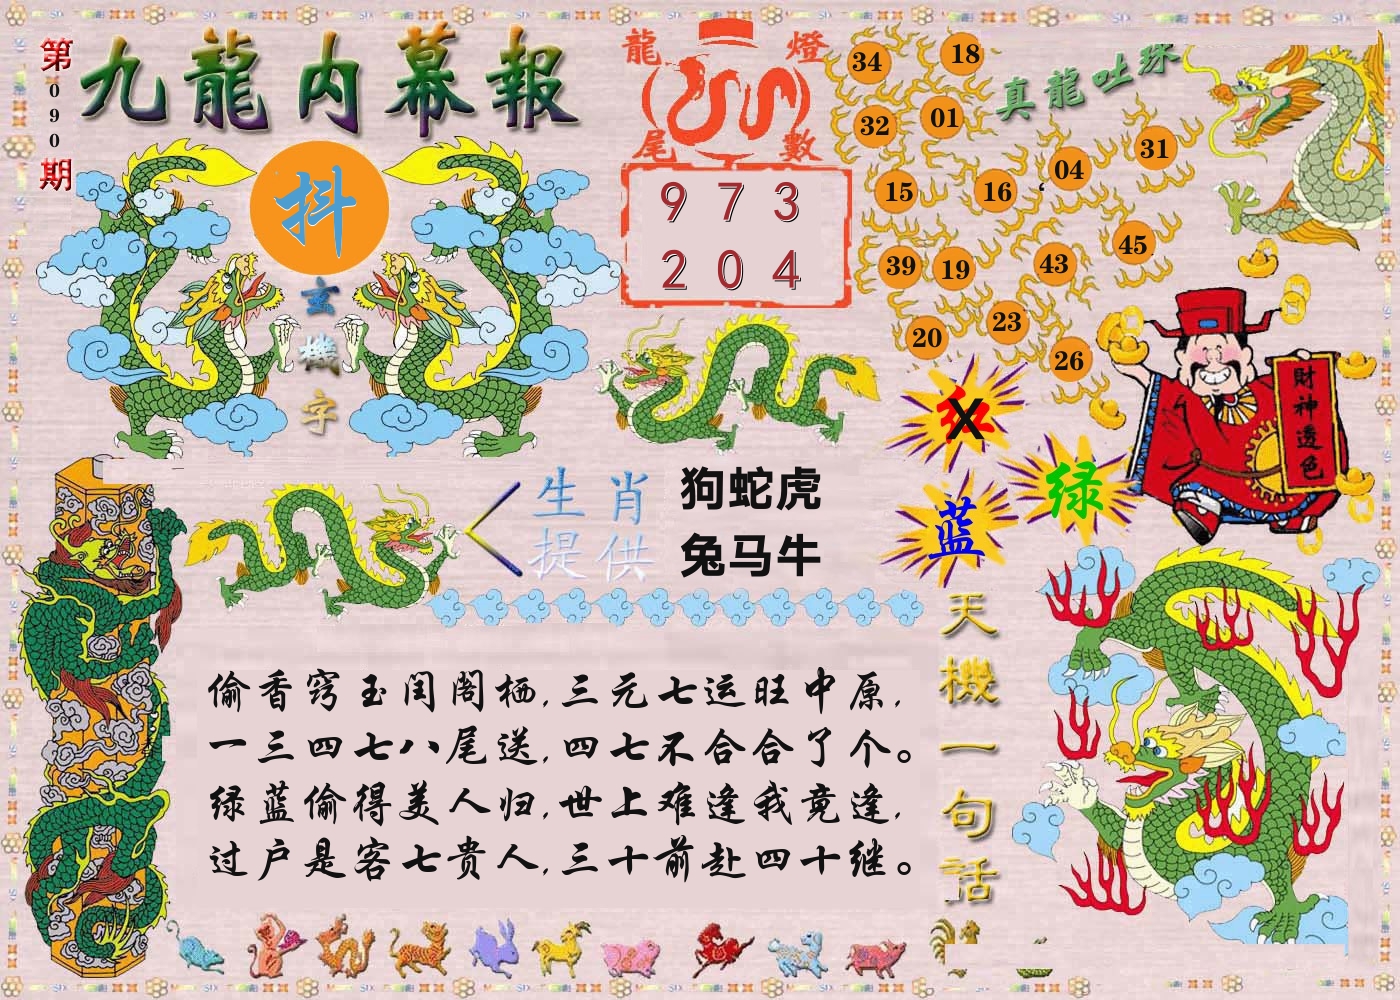 第090期
九龍内幕報
抖
玄機字
龍燈
尾數
9 7 3
2 0 4
真龍吐珠
34
18
32
01
04
31
15
16
39
19
43
45
20
23
26
財神透色
X
绿
蓝
生肖
提供
狗蛇虎
兔马牛
偷香窍玉闰阁栖,三元七运旺中原,
一三四七八尾送,四七不合合了个。
绿蓝偷得美人归,世上难逢我竟逢,
过户是客七贵人,三十前赴四十继。
天機一句話